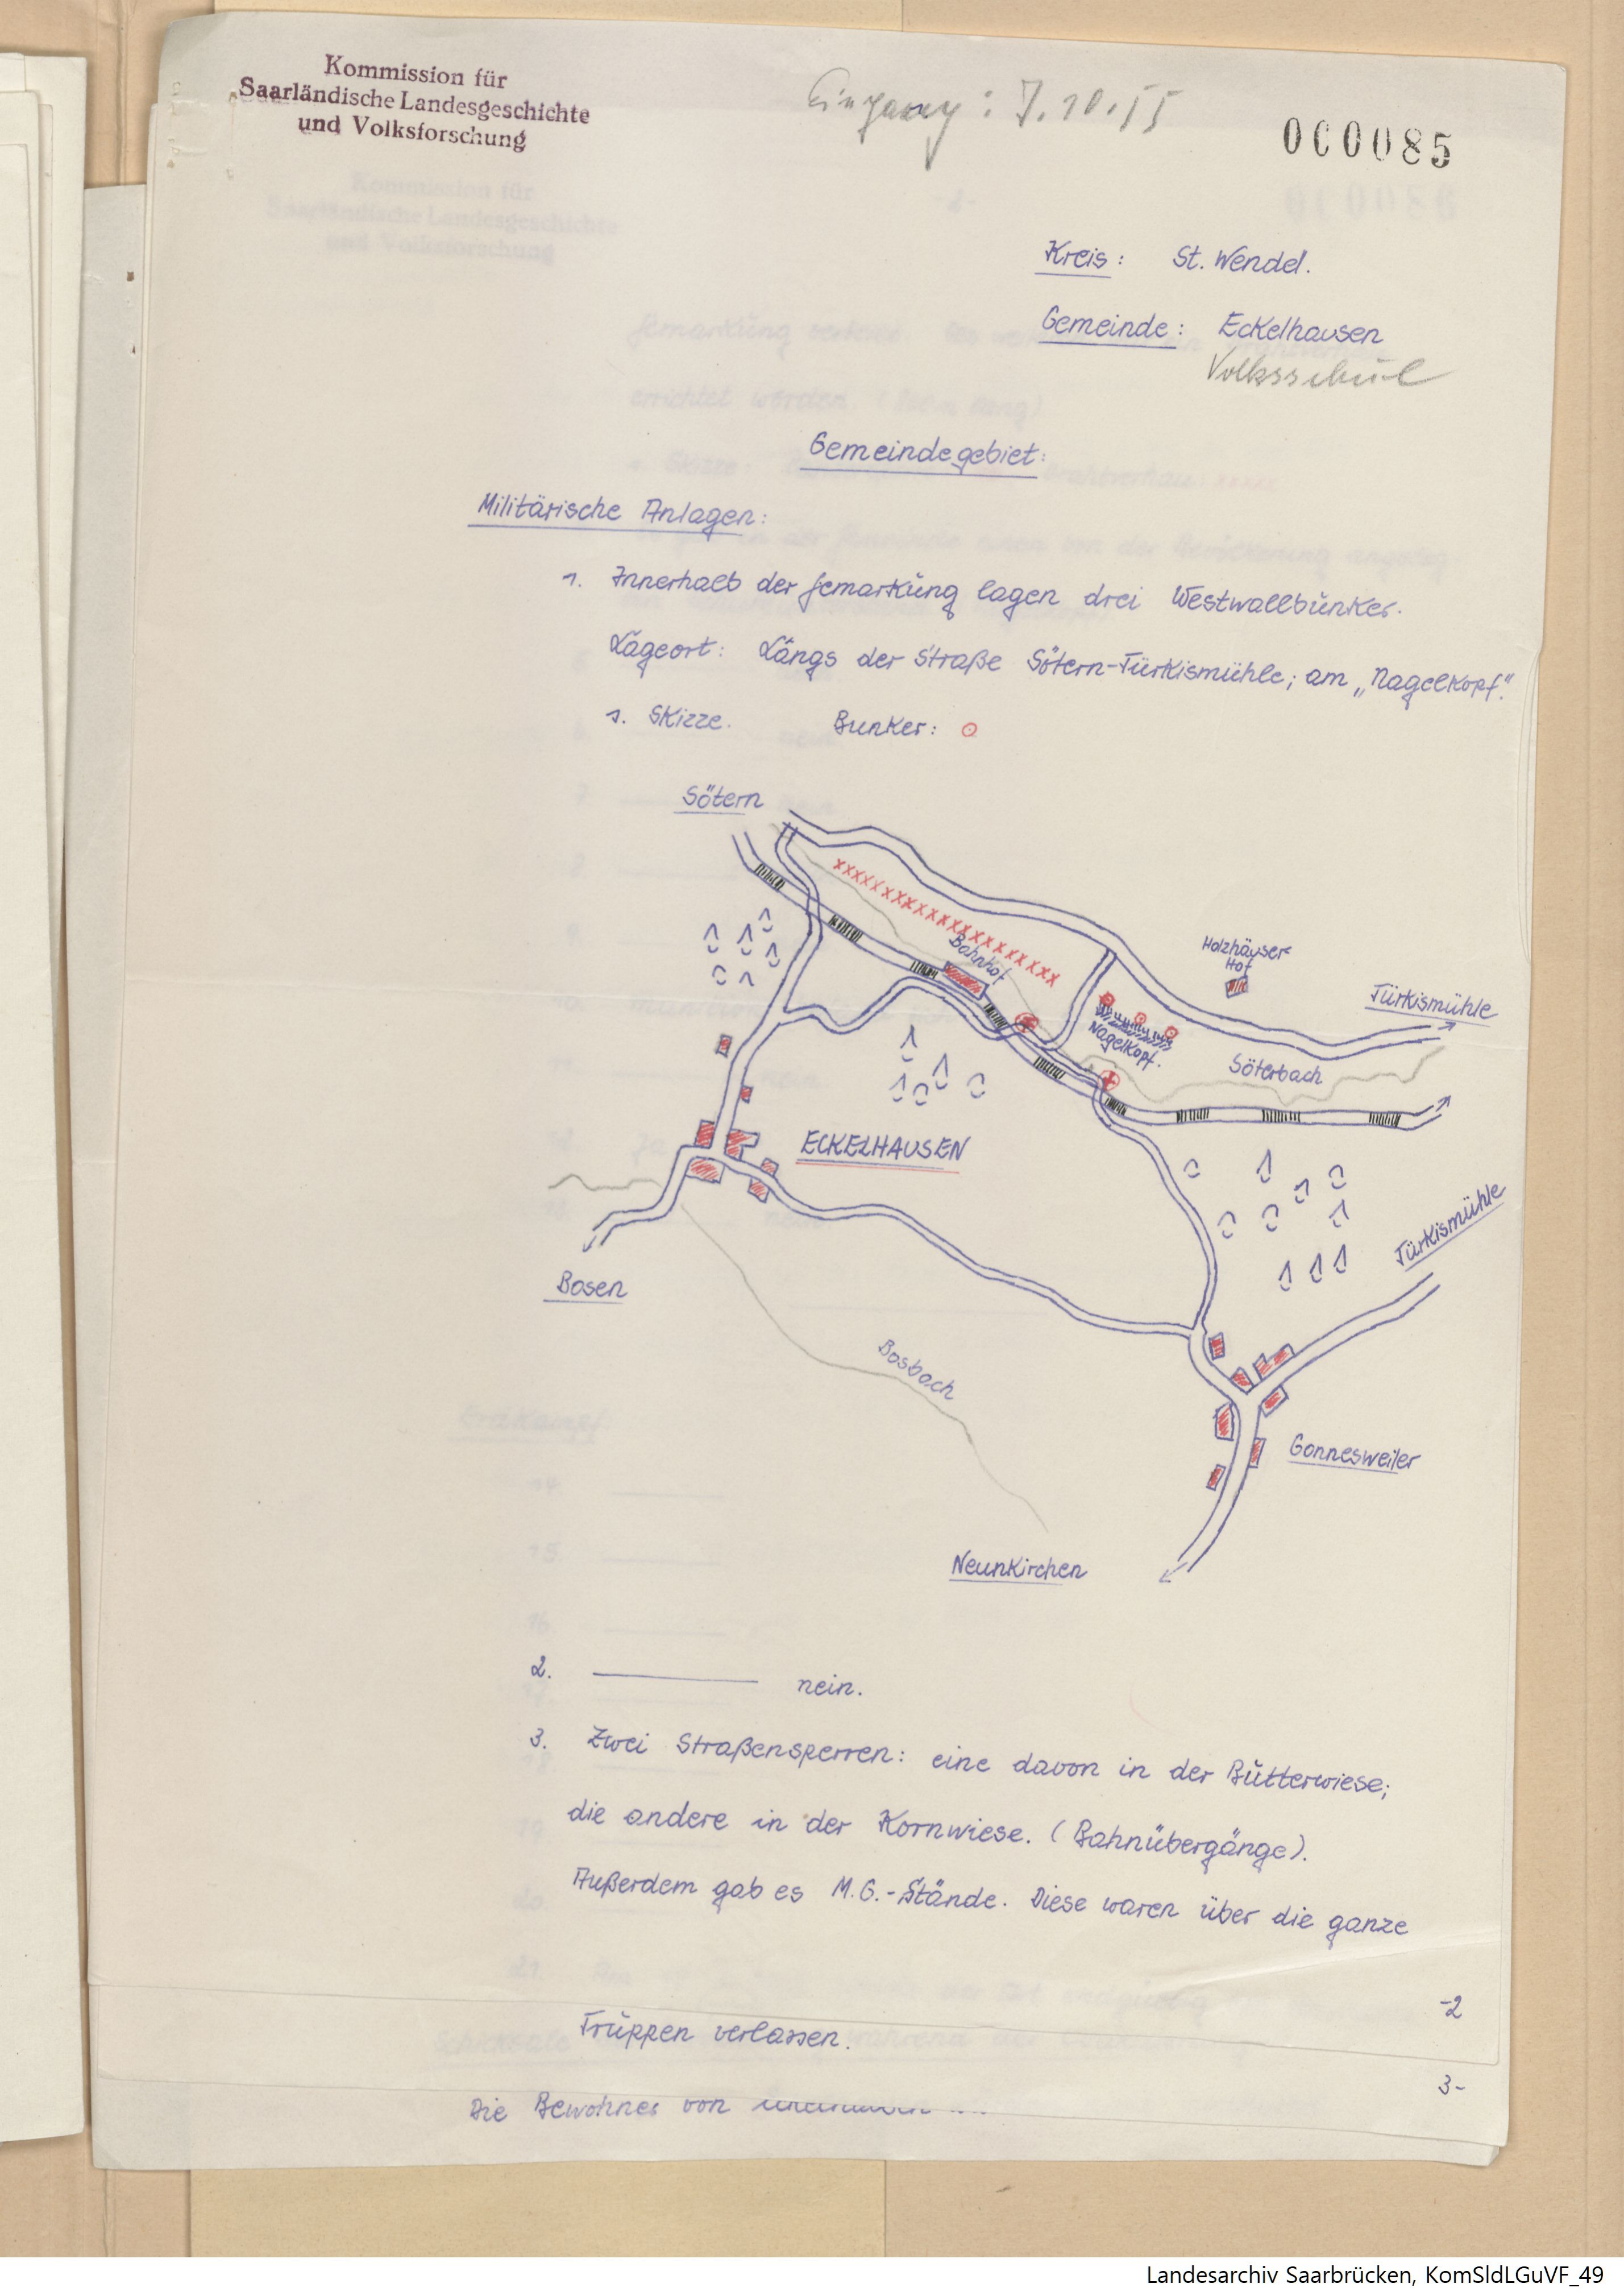 Kommission für
Saarländische Landesgeschichte
und Volksforschung
Eingang: 7.10.55
000085
Kreis: St. Wendel.
Gemeinde: Eckelhausen
Volksschule
Gemeindegebiet:
Militärische Anlagen:
1. Innerhalb der Gemarkung lagen drei Westwallbunker.
Lageort: Längs der Straße Sötern-Türkismühle; am „Nagelkopf".
s. Skizze. Bunker:
Sötern
Bahnhof
Holzhäuser
Hof
Türkismühle
Nagelkopf.
Söterbach
ECKELHAUSEN
Türkismühle
Bosen
Bosbach
Gonnesweiler
Neunkirchen
2. nein.
3. Zwei Straßensperren: eine davon in der Butterwiese;
die andere in der Kornwiese. (Bahnübergänge).
Außerdem gab es M.G.-Stände. Diese waren über die ganze
-2
Truppen verlassen.
3-
Die Bewohner von
Landesarchiv Saarbrücken, KomSldLGuVF_49